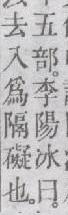 十五部。李陽冰曰。
去入爲隔礙也。